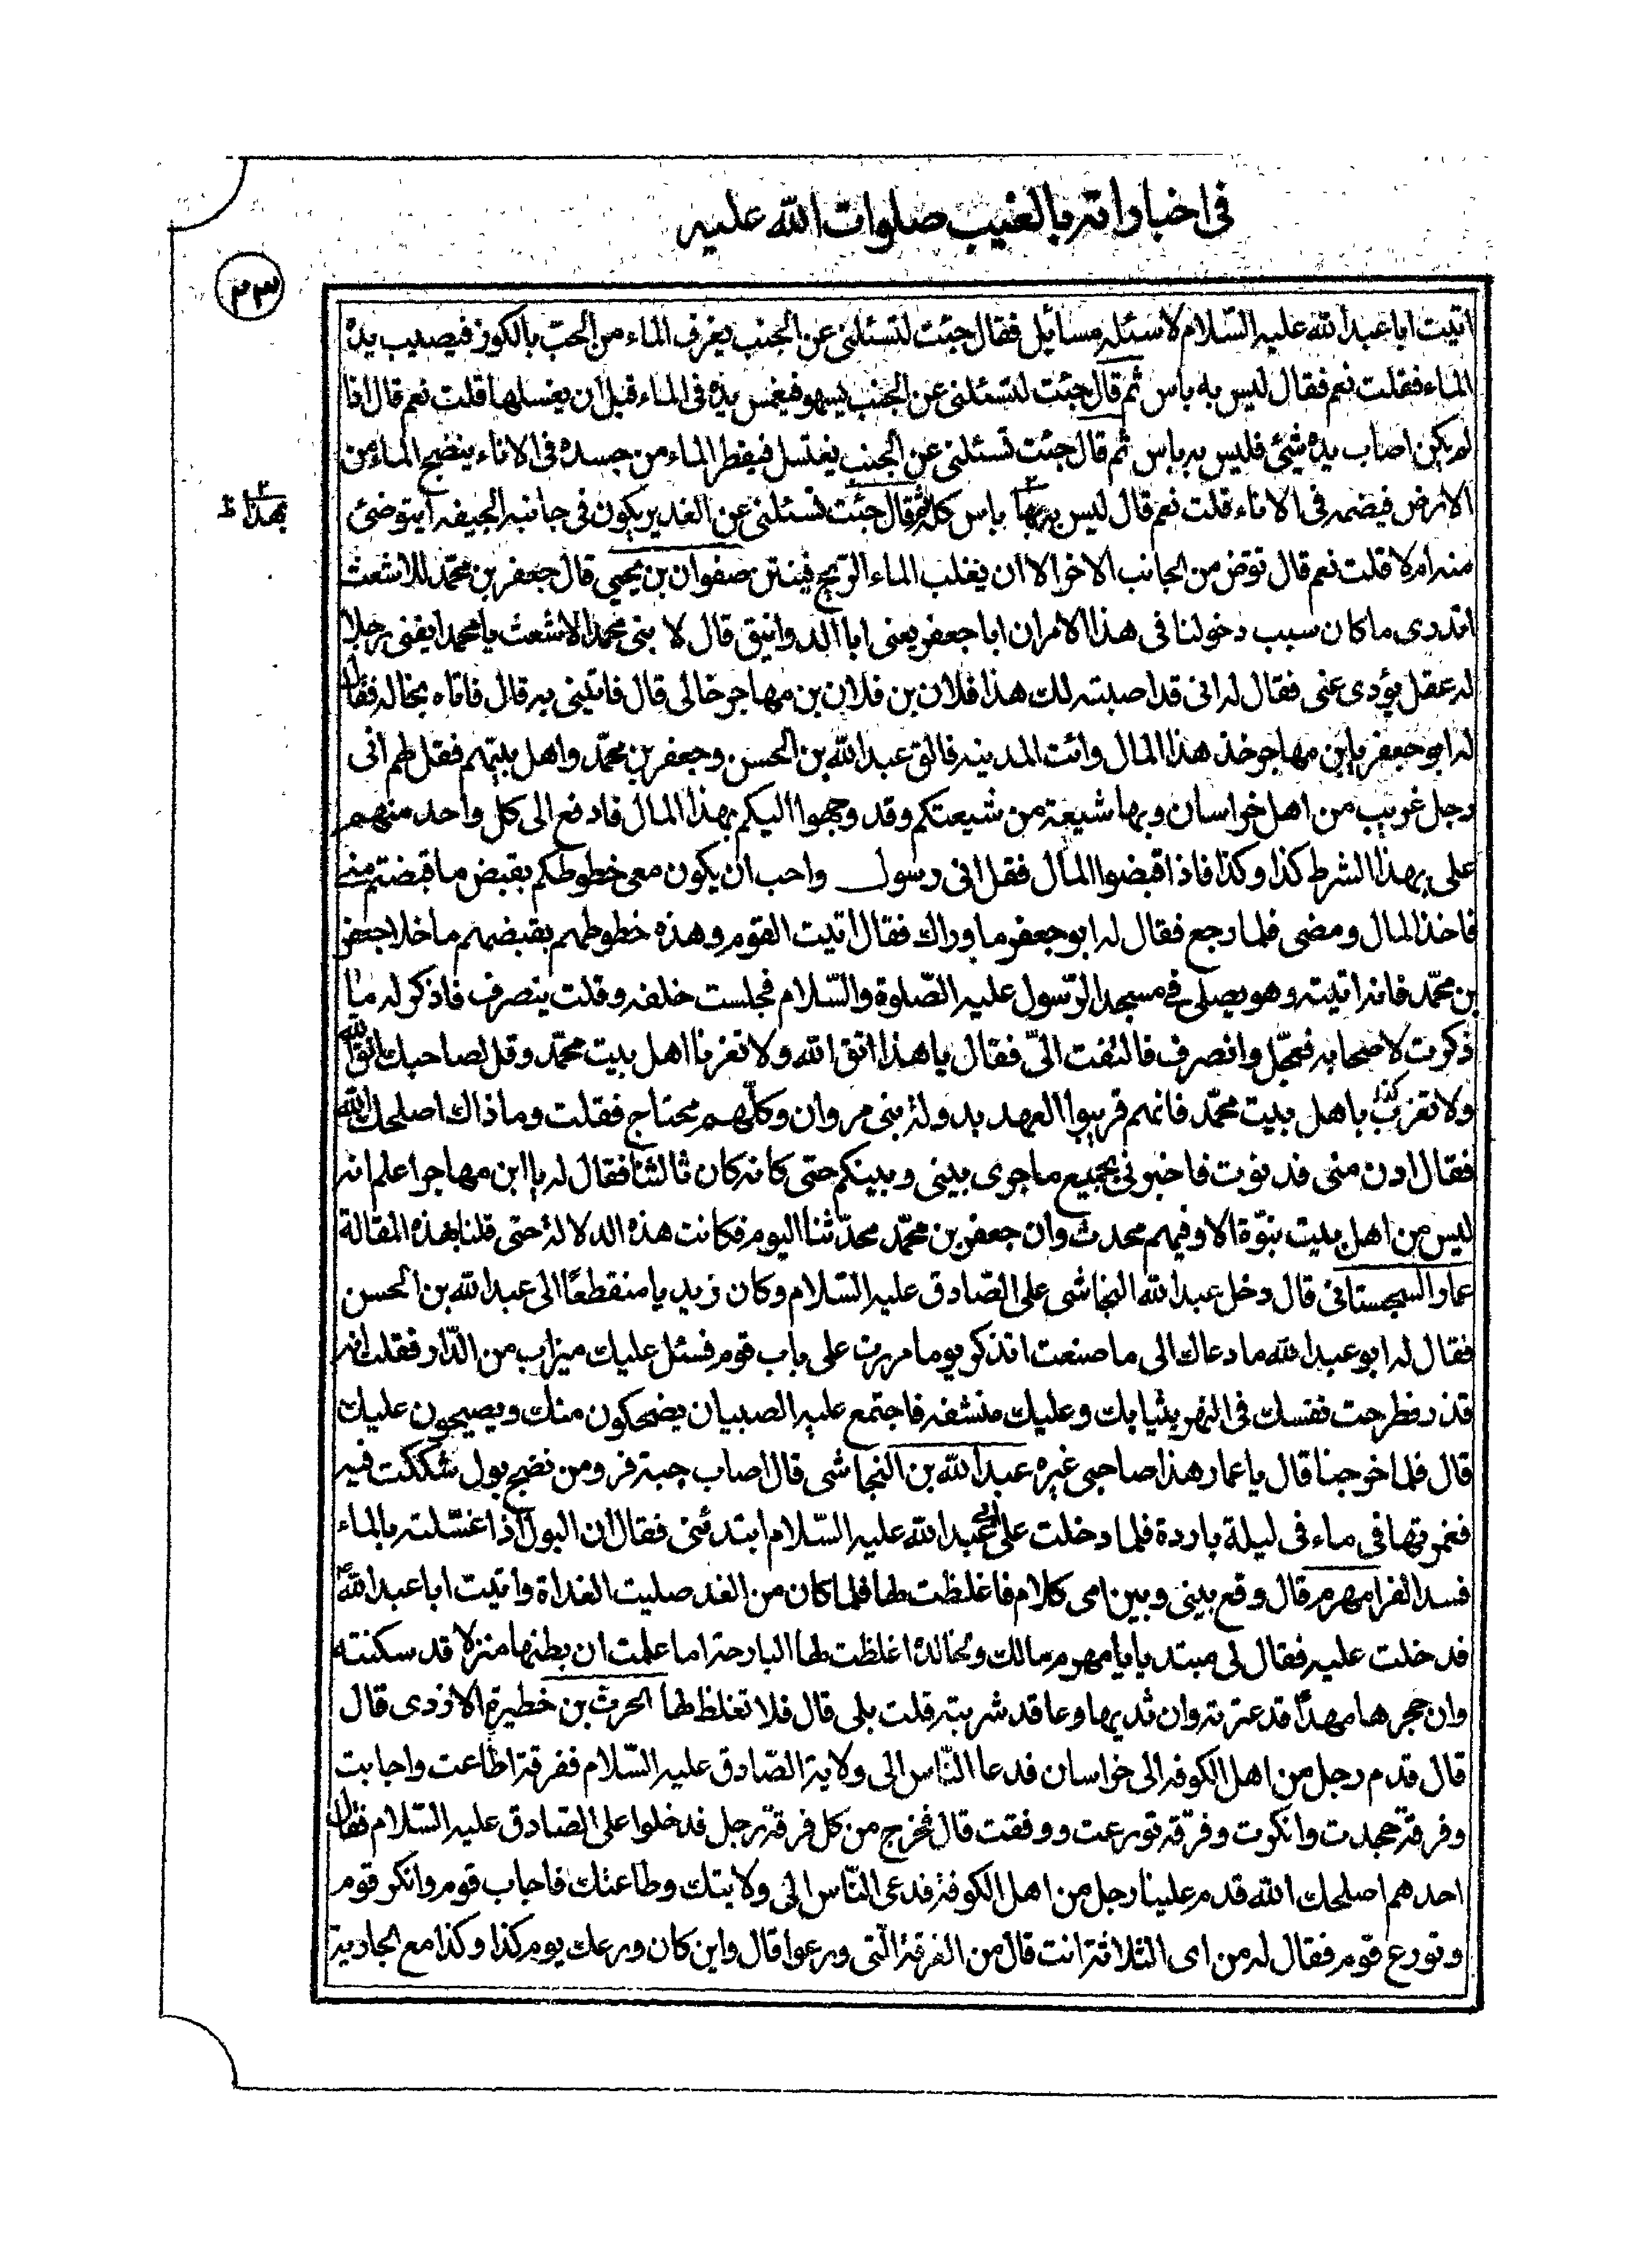 في اخباراته بالغيب صلوات الله عليه
٢٣
اتيت ابا عبد الله عليه السّلام لاسئله مسائل فقال جئت لتسئلني عن الجنب يغرف الماء من الحبّ بالكوز فيصيب يده
الماء فقلت نعم فقال ليس به باس ثم قال جئت لتسئلني عن الجنب يسهو فيغمس يده في الماء قبل ان يغسلها قلت نعم قال اذا
لم يكن اصاب يده شيئ فليس به باس ثم قال جئت تسئلني عن الجنب يغتسل فيقطر الماء من جسده في الاناء ينضح الماء من
الارض فيضمه في الاناء قلت نعم قال ليس بهذا باس كله ثم قال جئت تسئلني عن الغدير يكون في جانبه الجيفه ايتوضئ
بهذا ظ
منه ام لا قلت نعم قال توض من الجانب الاخر الا ان يغلب الماء الريح فينتن صفوان بن يحيى قال جعفر بن محمّد للاشعث
اتدرى ما كان سبب دخولنا في هذا الامر ان ابا جعفر يعنى ابا الدوانيق قال لا بنى محمد الاشعث يا محمد ابغنى رجلا
له عقل يؤدى عنى فقال له انى قد اصبته لك هذا فلان بن فلان بن مهاجر خالى قال فاتينى به قال فاتاه بخاله فقال
له ابو جعفر يا بن مهاجر خذ هذا المال وائت المدينه فالق عبد الله بن الحسن وجعفر بن محمّد واهل بيتهم فقل لهم انى
رجل غريب من اهل خراسان وبها شيعة من شيعتكم وقد وجهوا اليكم بهذا المال فادفع الى كل واحد منهم
على بهذا الشرط كذا وكذا فاذا قبضوا المال فقل انى رسول واحب ان يكون معى خطوطكم بقبض ما قبضتم منى
فاخذ المال ومضى فلما رجع فقال له ابو جعفر ما وراك فقال اتيت القوم وهذه خطوطهم بقبضهم ما خلا جعفر
بن محمّد فانه اتيته وهو يصلى في مسجد الرّسول عليه الصّلوة والسّلام فجلست خلفه وقلت ينصرف فاذكر له ما
ذكرت لاصحابه فعجّل وانصرف فالتفت الىّ فقال يا هذا اتق الله ولا تغرنا اهل بيت محمّد وقل لصاحبك اتق الله
ولا تغرنّ كذا باهل بيت محمّد فانهم قريبوا العهد بدولة بنى مروان وكلّهم محتاج فقلت وما ذاك اصلحك الله
فقال ادن منى فدنوت فاخبرنى بجميع ما جرى بينى وبينكم حتى كانه كان ثالثنا فقال له يا ابن مهاجر اعلم انه
ليس من اهل بيت نبوّة الا وفيهم محدث وان جعفر بن محمّد محدّثنا اليوم فكانت هذه الدلالة حتى قلنا بهذه المقالة
عمار السجستانى قال دخل عبد الله النجاشى على الصّادق عليه السّلام وكان زيديا منقطعًا الى عبد الله بن الحسن
فقال له ابو عبد الله ما دعاك الى ما صنعت اتذكر يوما مررت على باب قوم فسئل عليك ميزاب من الدّار فقلت انه
قذر فطرحت نفسك في النهر بثيابك وعليك منشفه فاجتمع عليه الصبيان يضحكون منك ويصيحون عليك
قال فلما خرجنا قال يا عمار هذا صاحبى غيره عبد الله بن النجاشى قال اصاب جبة فرو من نضح بول شككت فيه
فغمرتها في ماء في ليلة باردة فلما دخلت على ابى عبد الله عليه السّلام ابتدئنى فقال ان البول اذا غسّلته بالماء
فسد الفرا مهرم قال وقع بينى وبين امى كلام فاغلظت لها فلما كان من الغد صليت الغداة واتيت ابا عبد الله ع
فدخلت عليه فقال لى مبتديا يا مهرم مالك ولخالدة اغلظت لها البارحة اما علمت ان بطنها منزلا قد سكنته
وان حجرها مهدًا قد عترته وان ثديها وعا قد شربته قلت بلى قال فلا تغلظ لها الحرث بن خطيرة الازدى قال
قال قدم رجل من اهل الكوفه الى خراسان فدعا النّاس الى ولاية الصّادق عليه السّلام ففرقة اطاعت واجابت
وفرقة جحدت وانكرت وفرقة تورعت ووفقت قال فخرج من كل فرقة رجل فدخلوا على الصّادق عليه السّلام فقال
احدهم اصلحك الله قدم علينا رجل من اهل الكوفة فدعى النّاس الى ولايتك وطاعتك فاجاب قوم وانكر قوم
وتورع قوم فقال له من اى الثلاثة انت قال من الفرقة الّتى ورعوا قال واين كان ورعك يوم كذا وكذا مع الجارية